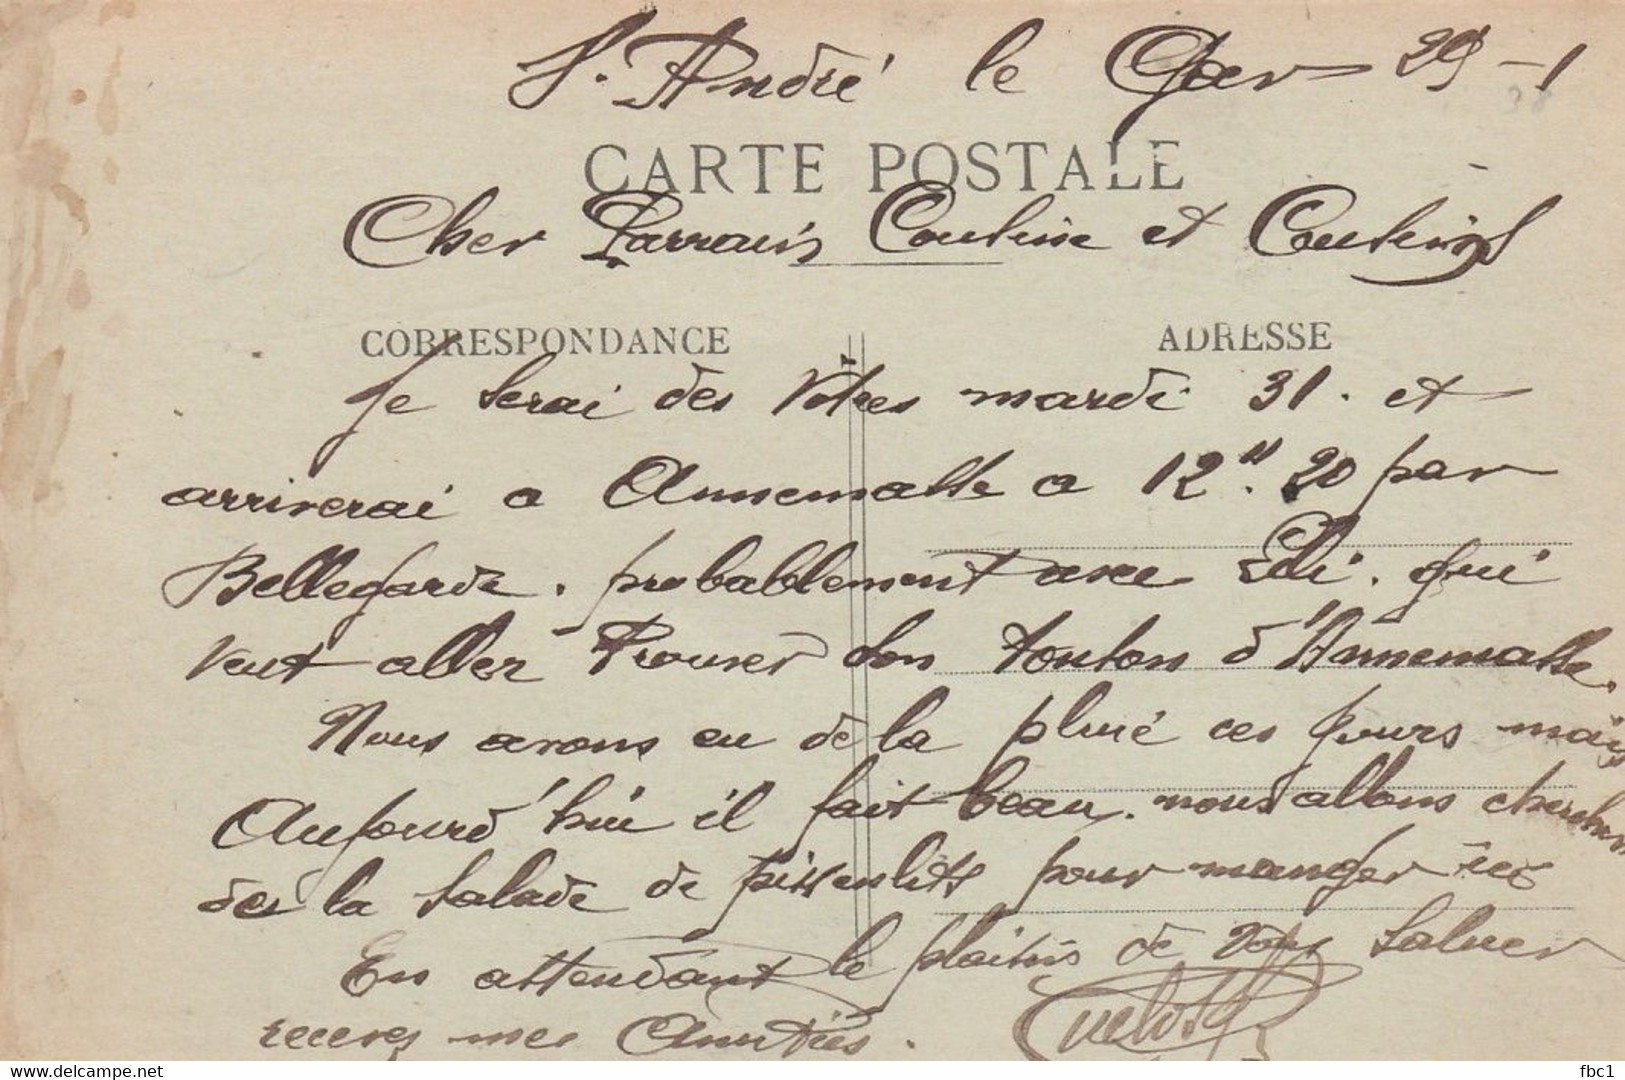 S. André le Gaz 29-1
38
CARTE POSTALE
Cher Parrain Cousine et Cousins
CORRESPONDANCE
ADRESSE
Je serai des Votres mardi 31. et
arriverai a Annemasse a 12H.20 par
Bellegarde. probablement avec qui
veut aller trouver son tonton d'Annemasse.
Nous avons eu de la pluie ces jours mais
Aujourd'hui il fait beau. nous allons chercher
de la salade de pissenlits pour manger
En attendant le plaisir de vous saluer
recevez mes Amitiés.
www.delcampe.net
fbc1